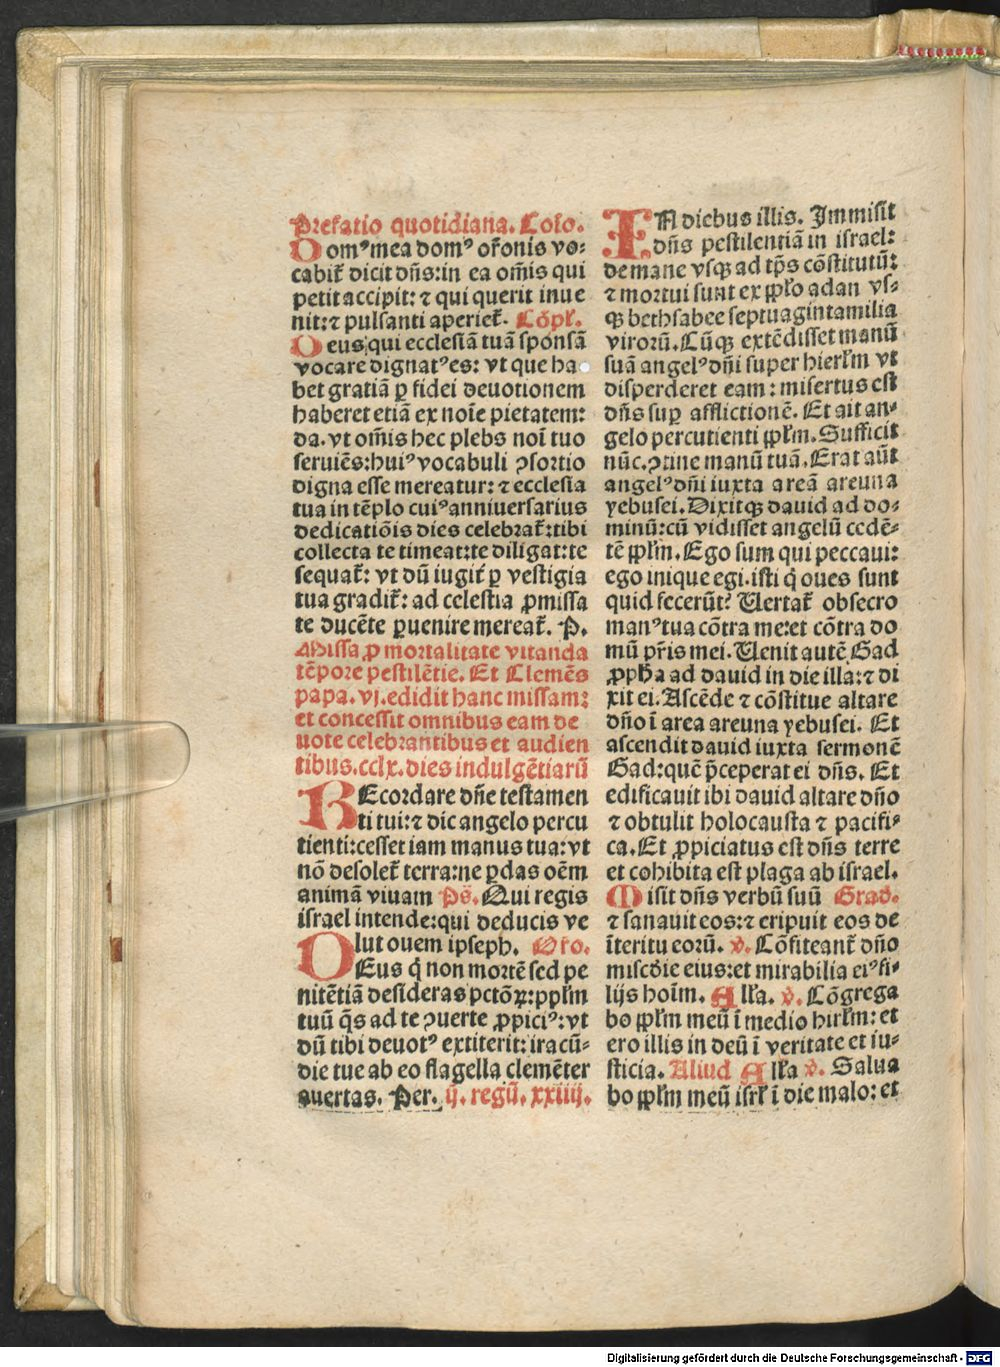 Prefatio quotidiana. Cōio.
Domꝰ mea domꝰ or̄onis vo⸗
cabit̄ dicit dn̄s: in ea om̄is qui
petit accipit: ⁊ qui querit inue
nit: ⁊ pulsanti aperiet̄. Cōpl̄.
Deus qui ecclesiā tuā sponsā
vocare dignatꝰ es: vt que ha⸗
bet gratiā ꝑ fidei deuotionem
haberet etiā ex noīe pietatem:
da. vt om̄is hec plebs noī tuo
seruiēs: huiꝰ vocabuli ꝯsortio
digna esse mereatur: ⁊ ecclesia
tua in tēplo cuiꝰ anniuersarius
dedicatiōis dies celebrat̄: tibi
collecta te timeat: te diligat: te
sequat̄: vt dū iugit̄ ꝑ vestigia
tua gradit̄: ad celestia ꝓmissa
te ducēte ꝑuenire mereat̄. P.
Missa ꝓ mortalitate vitanda
tēpore pestilētie. Et Clemēs
papa. vj. edidit hanc missam:
et concessit omnibus eam de
uote celebrantibus et audien
tibus. cclx. dies indulgētiarū
REcordare dn̄e testamen
ti tui: ⁊ dic angelo percu
tienti: cesset iam manus tua: vt
nō desolet̄ terra: ne ꝑdas oēm
animā viuam Ps̄. Qui regis
israel intende: qui deducis ve
lut ouem ioseph. Or̄o.
DEus q̄ non mortē sed pe
nitētiā desideras pctōꝝ: ppl̄m
tuū q̄s ad te ꝯuerte ꝓpiciꝰ: vt
dū tibi deuotꝰ extiterit: iracū⸗
die tue ab eo flagella clemēter
auertas. Per. ij. regū. xxiiij.
IN diebus illis. Immisit
dn̄s pestilentiā in israel:
de mane vsq; ad tp̄s cōstitutū:
⁊ mortui sunt ex ppl̄o a dan vs⸗
q; bethsabee septuaginta milia
virorū. Cūq; extēdisset manū
suā angelꝰ dn̄i super hierl̄m vt
disperderet eam: misertus est
dn̄s suꝑ afflictionē. Et ait an⸗
gelo percutienti ppl̄m. Sufficit
nūc. ꝯtine manū tuā. Erat aūt
angelꝰ dn̄i iuxta areā areuna
yebusei. Dixitq; dauid ad do⸗
minū: cū vidisset angelū cedē⸗
tē ppl̄m. Ego sum qui peccaui:
ego inique egi. isti q̄ oues sunt
quid fecerūt? Uertat̄ obsecro
manꝰ tua cōtra me: et cōtra do
mū pr̄is mei. Uenit autē Gad
ꝓph̄a ad dauid in die illa: ⁊ di
xit ei. Ascēde ⁊ cōstitue altare
dn̄o ī area areuna yebusei. Et
ascendit dauid iuxta sermonē
Gad: quē p̄ceperat ei dn̄s. Et
edificauit ibi dauid altare dn̄o
⁊ obtulit holocausta ⁊ pacifi⸗
ca. Et ꝓpiciatus est dn̄s terre
et cohibita est plaga ab israel.
Misit dn̄s verbū suū Grad̄.
⁊ sanauit eos: ⁊ eripuit eos de
īteritu eorū. v̄. Cōfiteant̄ dn̄o
misc̄die eius: et mirabilia eiꝰ fi⸗
lijs hoīm. All̄a. v̄. Cōgrega
bo ppl̄m meū ī medio hirl̄m: et
ero illis in deū ī veritate et iu⸗
sticia. Aliud All̄a v̄. Salua
bo ppl̄m meū isrl̄ ī die malo: et
Digitalisierung gefördert durch die Deutsche Forschungsgemeinschaft - DFG